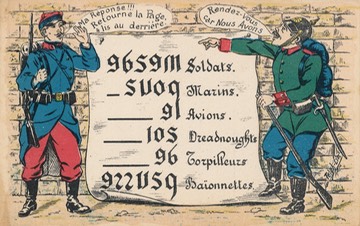 Ma Réponse!!!
Retourne la Page,
Lis au derrière.
Rendez-vous
Car Nous Avons
96S9M Soldats.
_SUOq Marins.
91 Avions.
10S Dreadnoughts
96 Torpilleurs
922USq Baïonnettes.